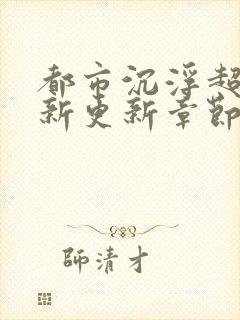 都市沉浮超
新更新章節
師清才